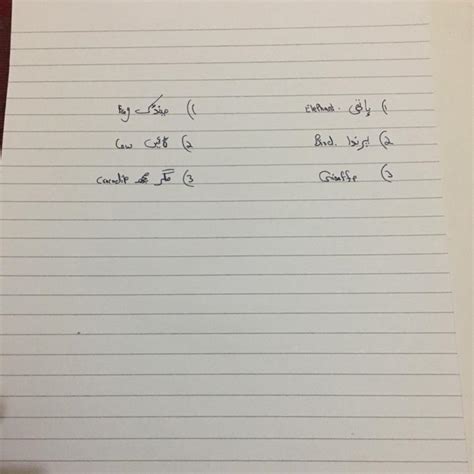 1) ہاتی Elephant.
2) پرندا Bird.
3) Giraffe
1) مینڈک Frog
2) گائے Cow
3) مگر مچھ